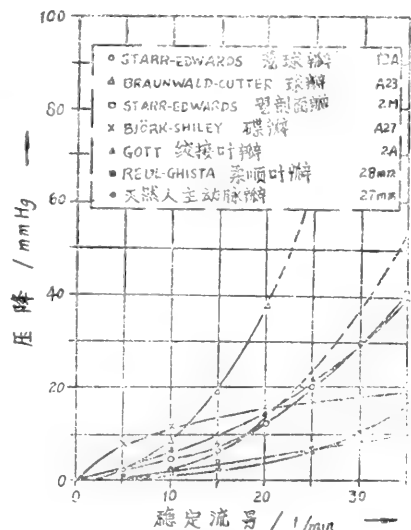 100
80
60
40
20
0
STARR-EDWARDS 笼球瓣 12A
BRAUNWALD-CUTTER 球瓣 A23
STARR-EDWARDS 型剖面瓣 2M
BJÖRK-SHILEY 碟瓣 A27
GOTT 绞接叶瓣 2A
REUL-GHISTA 柔顺叶瓣 28mm
天然人主动脉瓣 27mm
压降 / mmHg
0 10 20 30
稳定流号 / l/min